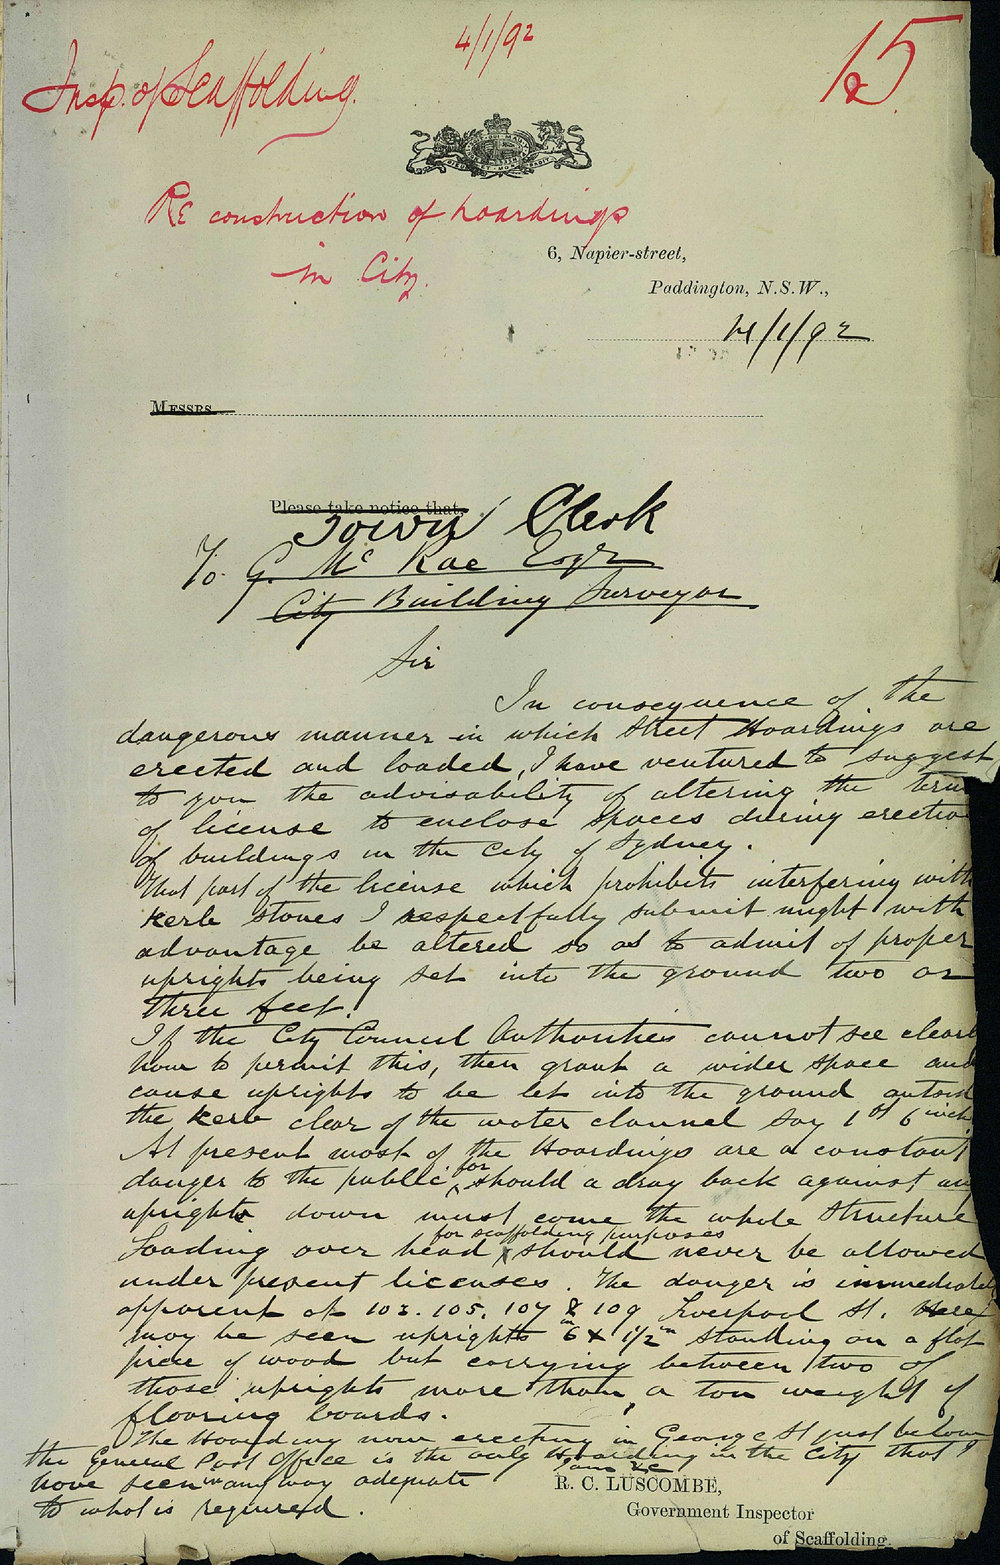 4/1/92
15
Insp. of Scaffolding.
Re construction of hoardings
in City.
6, Napier-street,
Paddington, N.S.W.,
4/1/92
Messrs
Please take notice that,
Town Clerk
To G. Mc Rae Esqr
City Building Surveyor
Sir
In consequence of the
dangerous manner in which Street Hoardings are
erected and loaded, I have ventured to suggest
to you the advisability of altering the term
of license to enclose spaces during erectio
of buildings in the City of Sydney.
That part of the license which prohibits interfering with
Kerb stones I respectfully submit might with
advantage be altered so as to admit of proper
uprights being set into the ground two or
three feet.
If the City Council Authorities cannot see clearl
how to permit this, then grant a wider space and
cause uprights to be let into the ground outsid
the Kerb clear of the water channel say 1 ft 6 inch
At present most of the Hoardings are a constant
danger to the public, for should a dray back against any
uprights down must come the whole structure
Loading over head for scaffolding purposes should never be allowed
under present licenses. The danger is immediately
apparent at 103. 105. 107 & 109 Liverpool St. Here
may be seen uprights 6in x 1 1/2in standing on a flat
piece of wood but carrying between two of
those uprights more than a ton weight of
flooring boards.
The Hoarding now erecting in George St just below
the General Post Office is the only Hoarding in the City that I
have seen in any way adequate
to what is required.
R. C. LUSCOMBE,
Government Inspector
of Scaffolding.